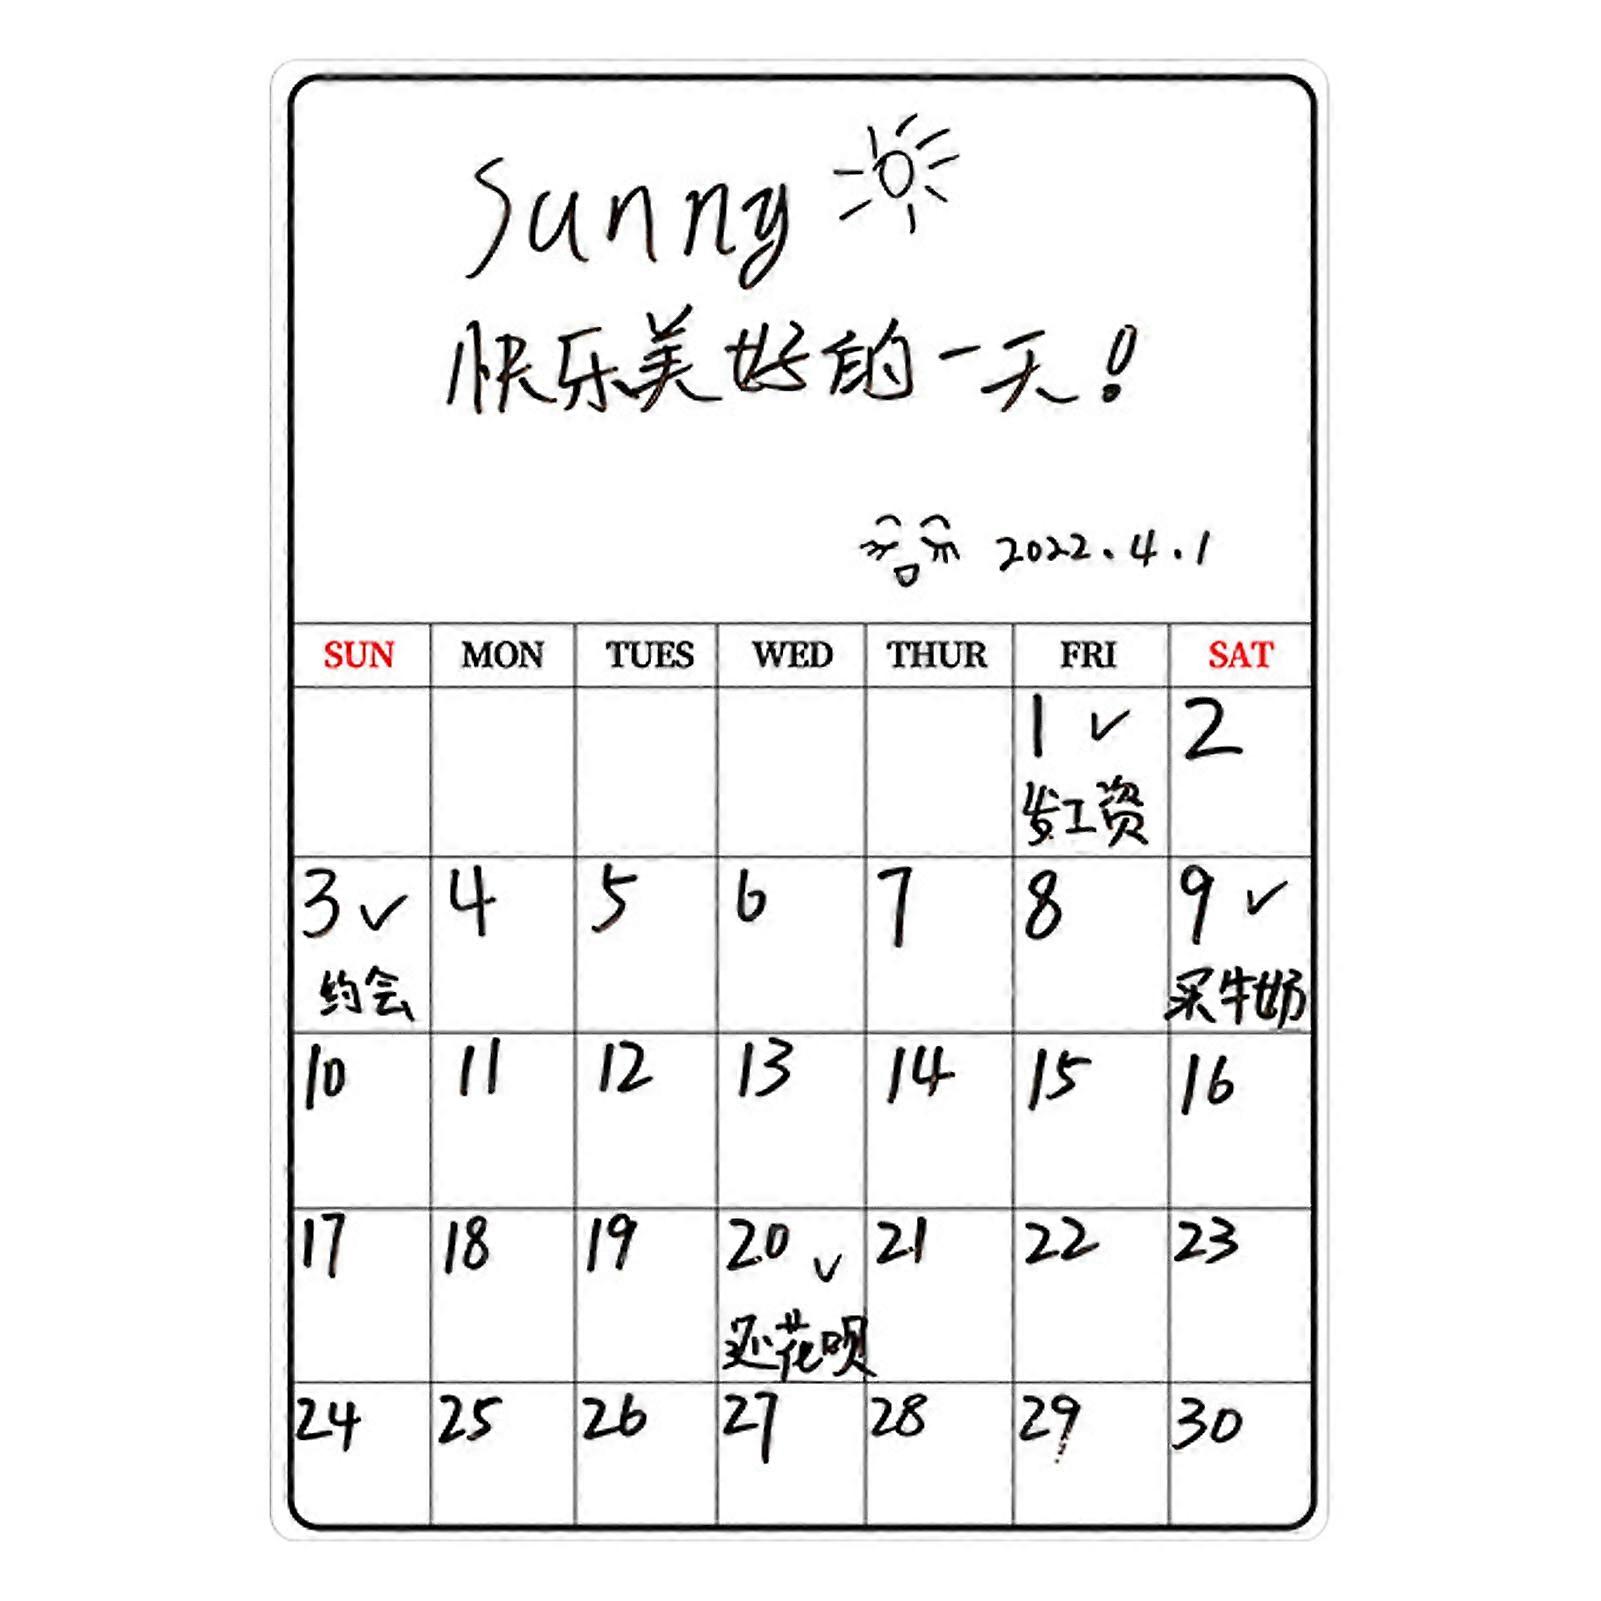 Sunny
快乐美好的一天！
2022.4.1
SUN MON TUES WED THUR FRI SAT
1 ✓ 2
发工资
3 ✓ 4 5 6 7 8 9 ✓
约会 买牛奶
10 11 12 13 14 15 16
17 18 19 20 ✓ 21 22 23
还花呗
24 25 26 27 28 29 30